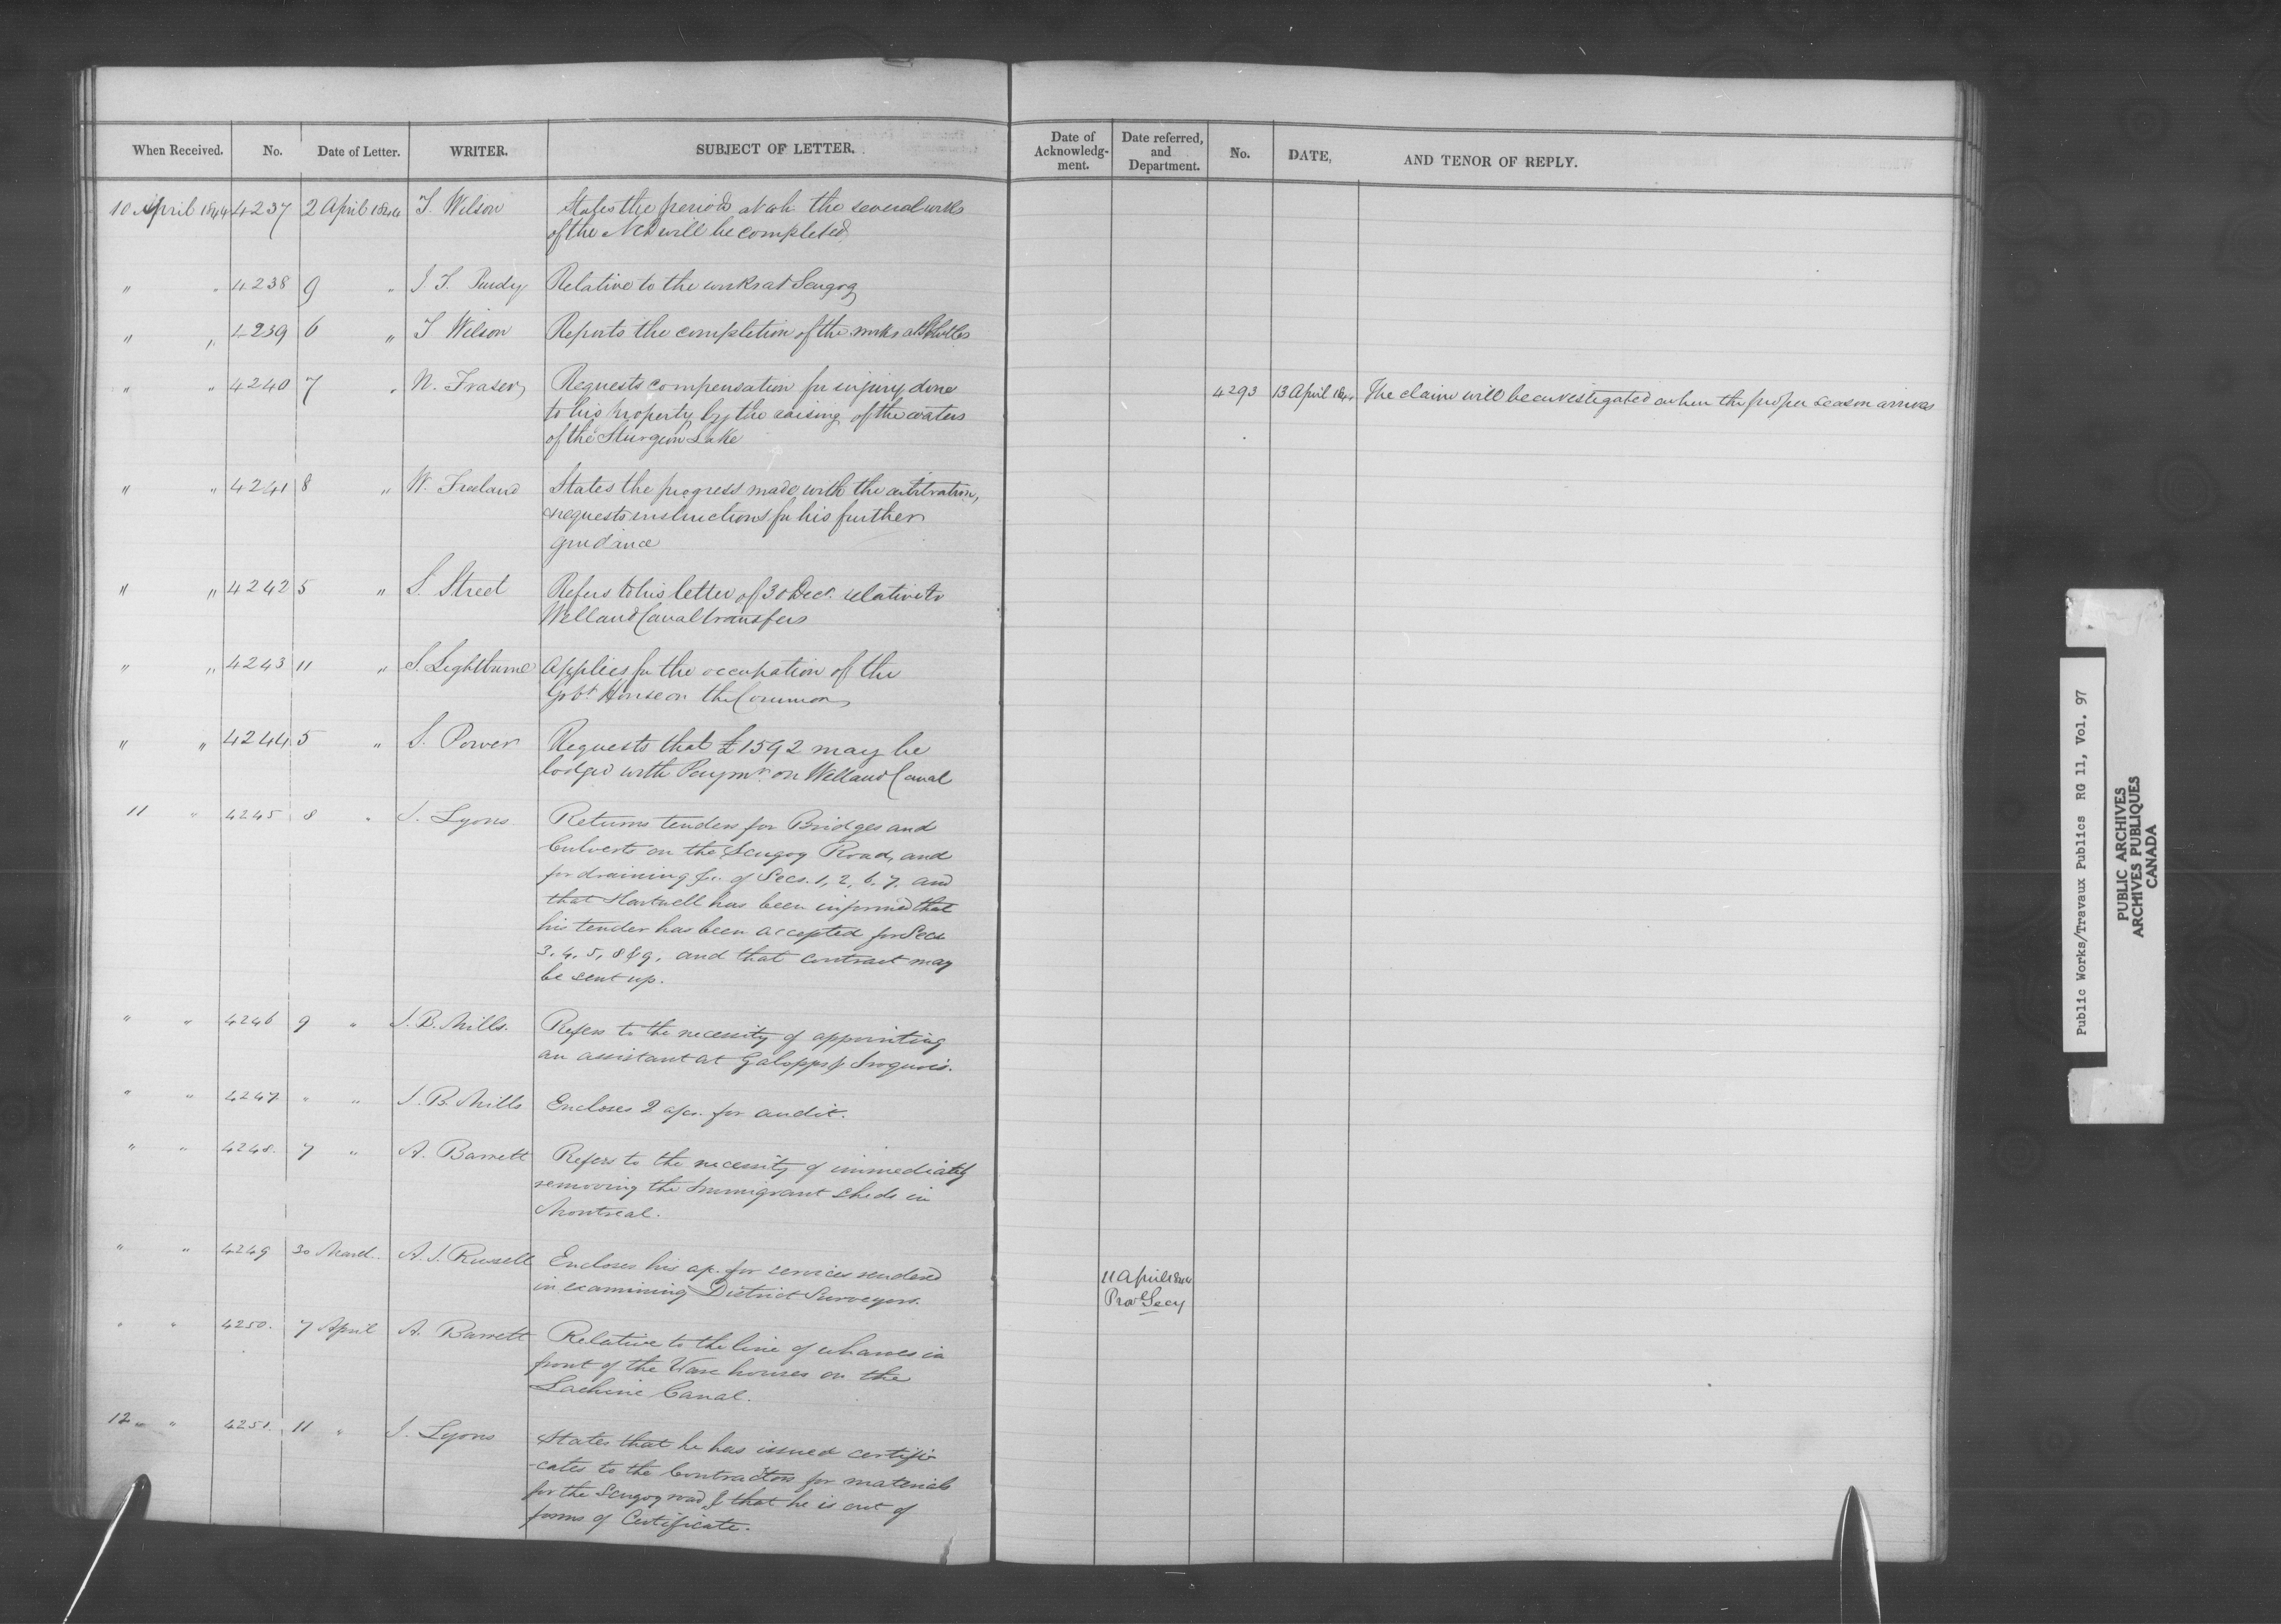 When Received. No. Date of Letter. WRITER. SUBJECT OF LETTER.
Date of Acknowledg-ment. Date referred, and Department. No. DATE, AND TENOR OF REPLY.
10 April 1844 4237 2 April 1844 T. Wilson States the period at wh. the several wks
of the will be completed
" " 4238 9 " J. T. Purdy Relative to the works at Scugog
" " 4239 6 " T Wilson Reports the completion of the works at
" " 4240 7 " N. Fraser Requests compensation for injury done
to his property by the raising of the waters
of the Sturgeon Lake
4293 13 April 1844 The claim will be investigated when the proper season arrives
" " 4241 8 " W. Freeland States the progress made with the arbitration,
& requests instructions for his further
guidance
" " 4242 5 " S. Street Refers to his letter of 30 Decr. relative to
Welland Canal transfers
" " 4243 11 " S. Lightburne Applies for the occupation of the
Govt. House on the Common
" " 4244 5 " S. Power Requests that £1592 may be
lodged with Paymr. on Welland Canal
11 " 4245 8 " J. Lyons Returns tenders for Bridges and
Culverts on the Scugog Road, and
for draining &c. of Secs. 1, 2, 6, 7. and
that Hartwell has been informed that
his tender has been accepted for Secs
3. 4. 5, 8 & 9, and that contract may
be sent up.
" " 4246 9 " J. B. Mills. Refers to the necessity of appointing
an assistant at Galopps & Iroquois.
" " 4247 " " J. B. Mills Encloses 2 a/cs. for audit.
" " 4248. 7 " A. Barrett Refers to the necessity of immediately
removing the Immigrant sheds in
Montreal.
" " 4249 30 March A. J. Russell Encloses his a/c. for services rendered
in examining District Surveyors.
11 April 1844
Provl Secy
" " 4250. 7 April A. Barrett Relative to the line of wharves in
front of the Ware houses on the
Lachine Canal.
12 " " 4251. 11 " J. Lyons States that he has issued certifi-
-cates to the Contractors for materials
for the Scugog road & that he is out of
forms of Certificate.
Public Works/Travaux Publics RG 11, Vol. 97
PUBLIC ARCHIVES
ARCHIVES PUBLIQUES
CANADA